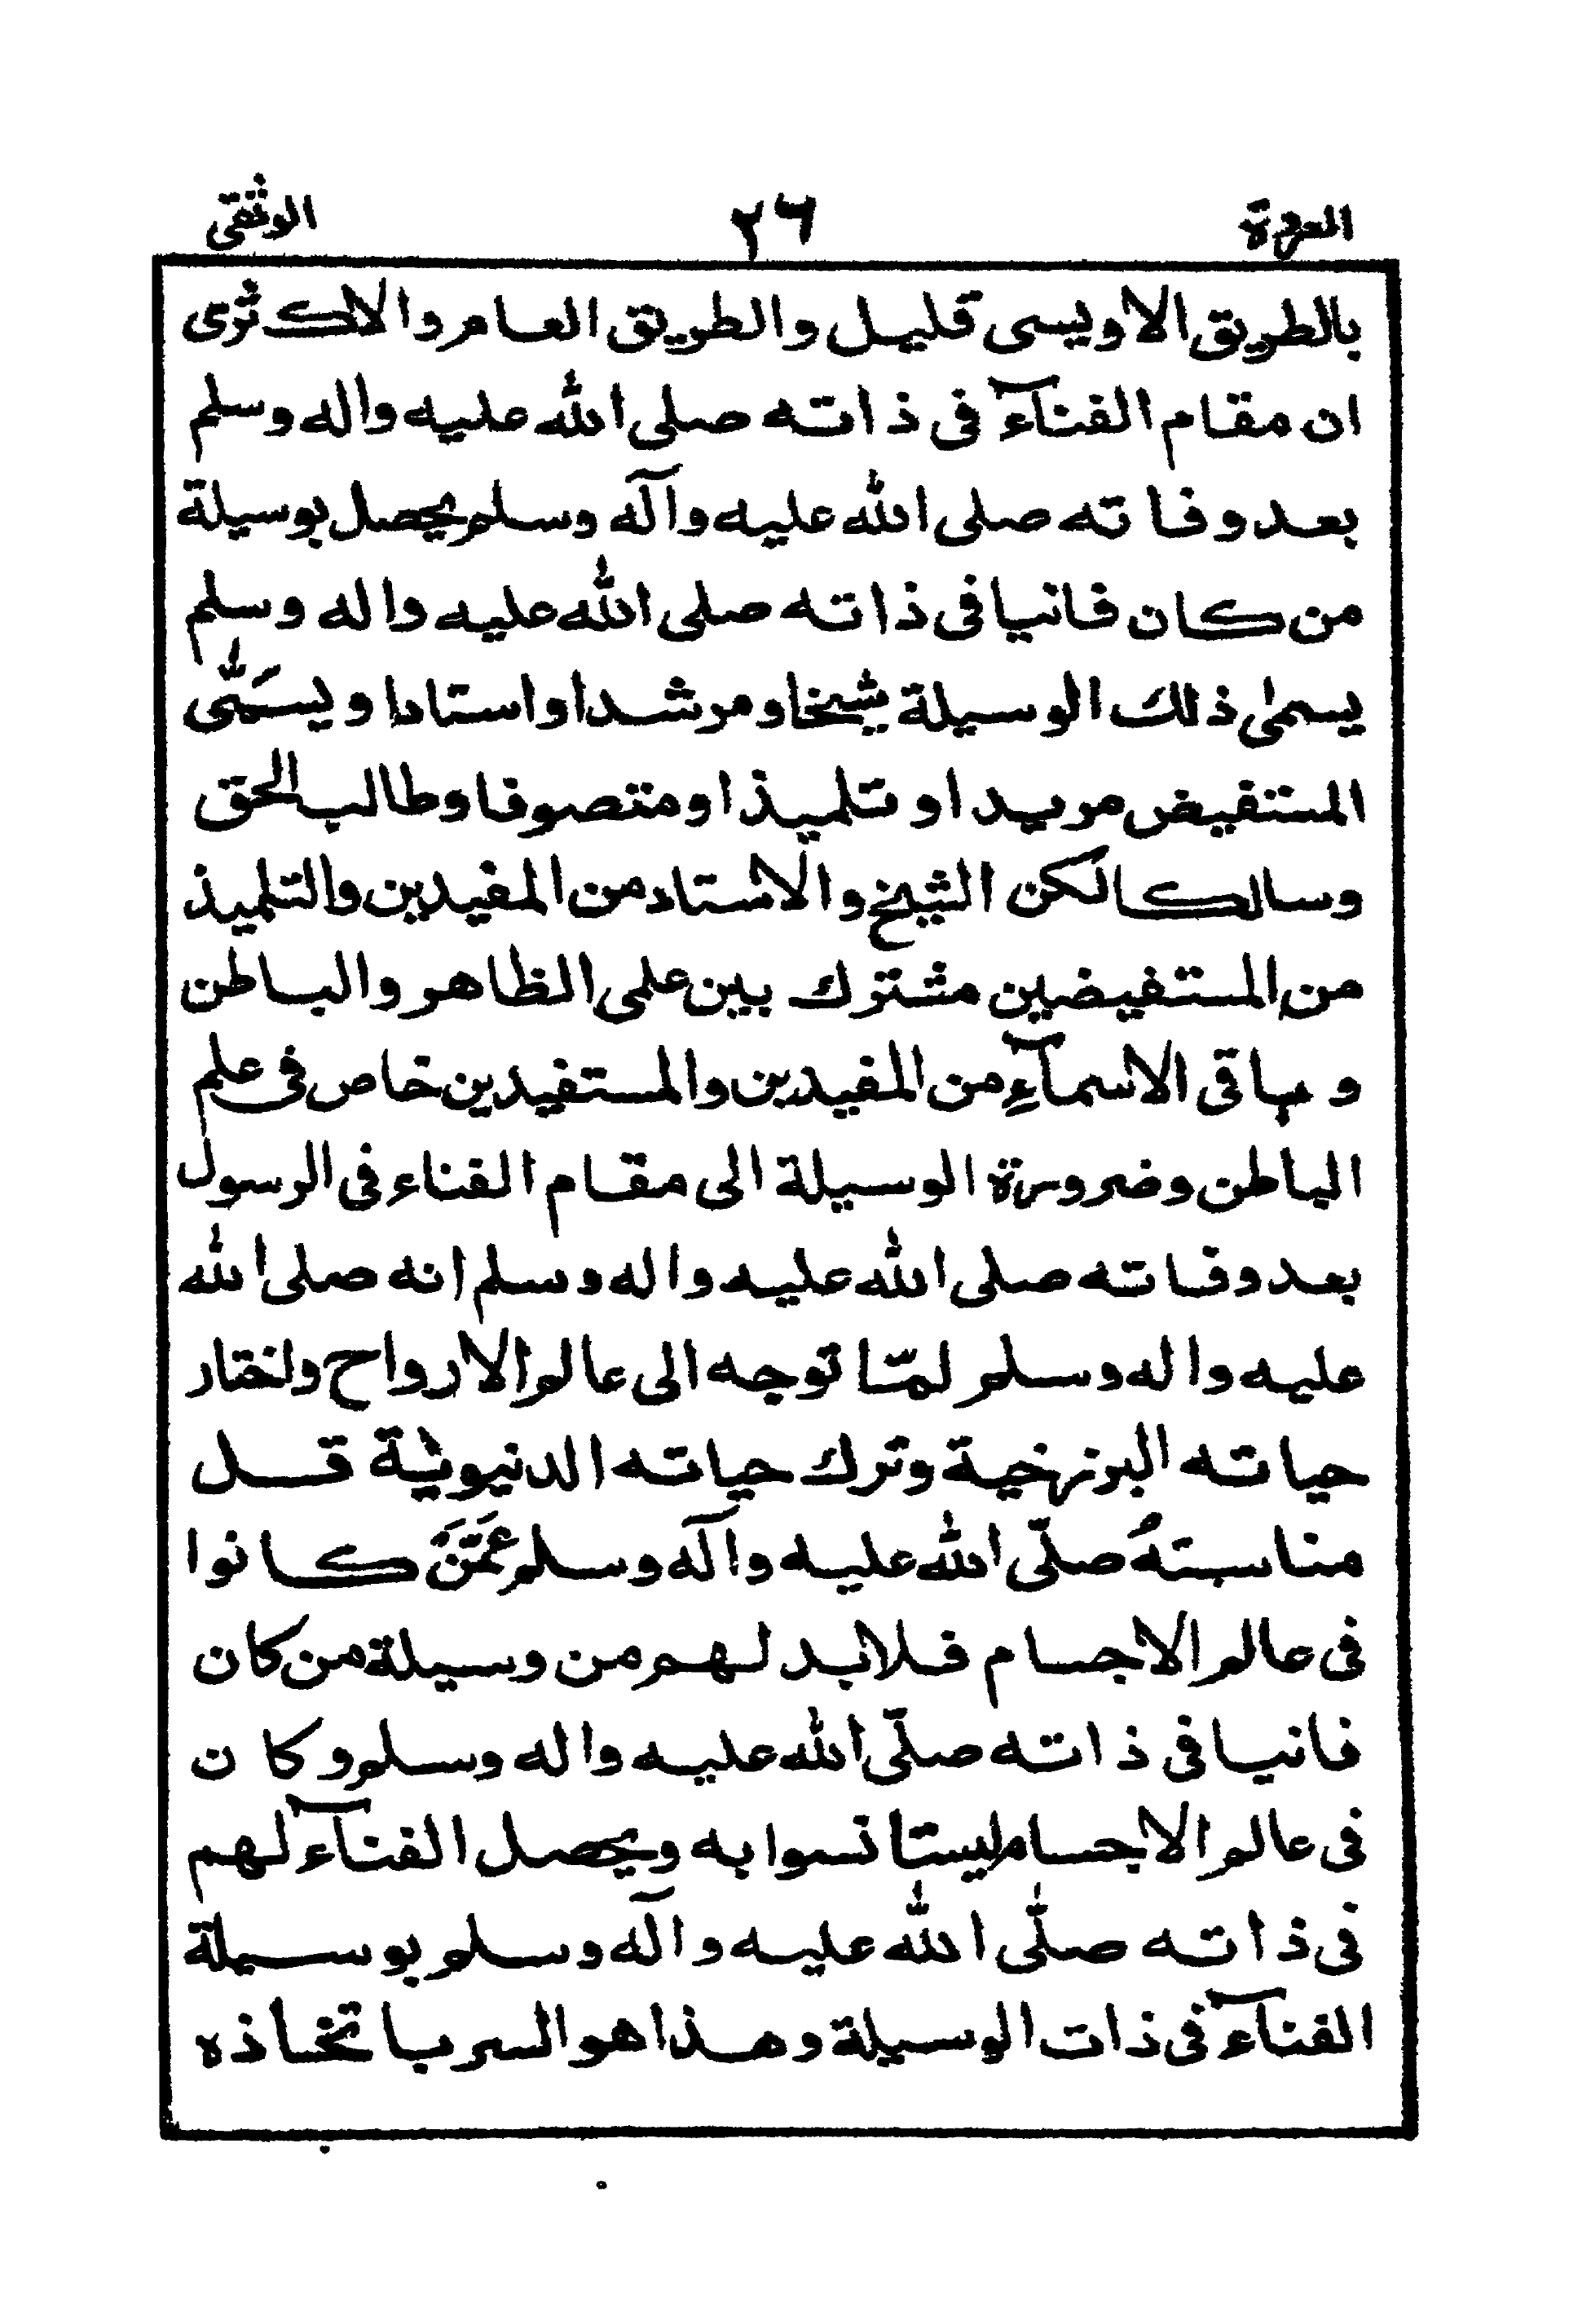 العروة ٢٦ الوثقى
بالطريق الاويسى قليل والطريق العام والاكثرى
ان مقام الفنآء فى ذاته صلى الله عليه واله وسلم
بعد وفاته صلى الله عليه وآله وسلم يحصل بوسيلة
من كان فانيا فى ذاته صلى الله عليه واله وسلم
يسمى ذلك الوسيلة شيخا ومرشدا واستادا ويسَمّٰى
المستفيض مريدا وتلميذا ومتصوفا وطالب الحق
وسالكا لكن الشيخ والاستاد من المفيدين والتلميذ
من المستفيضين مشترك بين علمى الظاهر والباطن
وباقى الاسمآءِ من المفيدين والمستفيدين خاص فى علم
الباطن وضرورة الوسيلة الى مقام الفناء فى الرسول
بعد وفاته صلى الله عليه واله وسلم انه صلى الله
عليه واله وسلم لمّا توجه الى عالم الارواح واختار
حياته البرزخية وترك حياته الدنيوية قل
مناسبتهُ صلّى الله عليه وآله وسلم عَمَّنَ كانوا
فى عالم الاجسام فلابد لهم من وسيلة من كان
فانيا فى ذاته صلّى الله عليه واله وسلم وكان
فى عالم الاجسام ليستانسوا به ويحصل الفنآء لهم
فى ذاته صلّٰى الله عليه وآله وسلم بوسيلة
الفنآء فى ذات الوسيلة وهذا هو السر باتخاذه